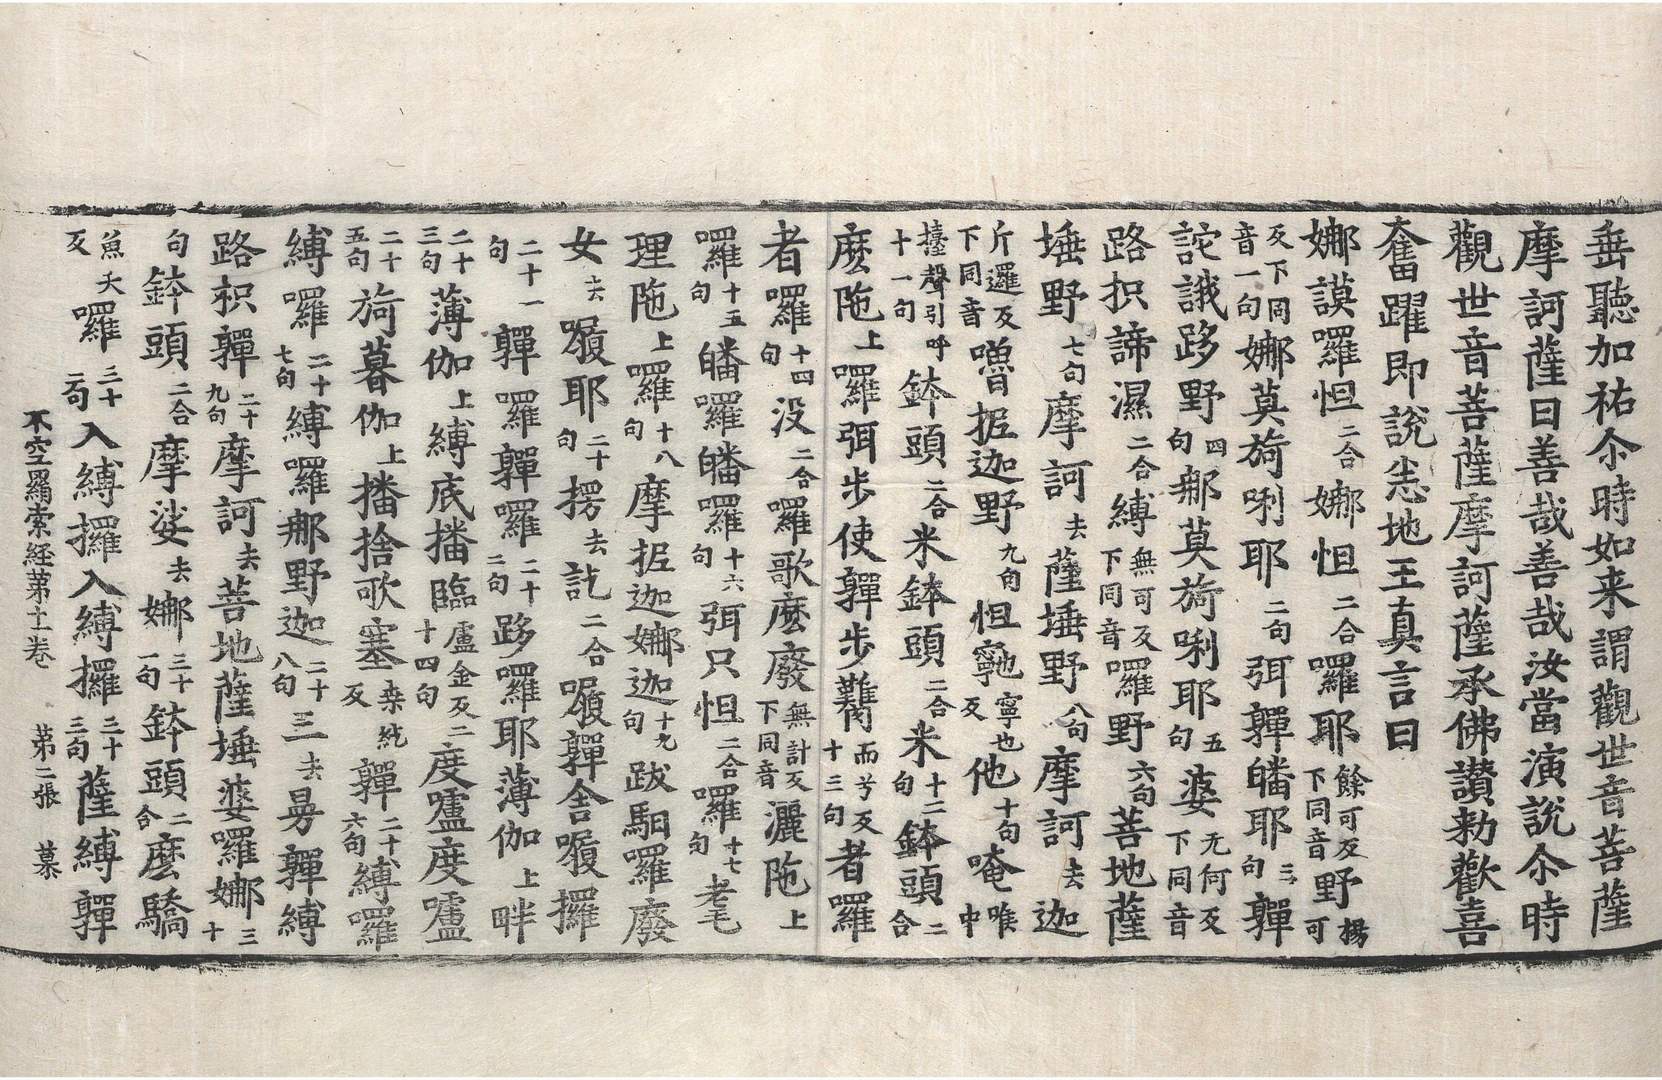 垂聽加祐尒時如来謂觀世音菩薩
摩訶薩曰善哉善哉汝當演說尒時
觀世音菩薩摩訶薩承佛讃勑歡喜
奮躍即說悉地王真言曰
娜謨囉怛二合娜怛二合囉耶餘可反下同音野楊可
反下同音一句娜莫旖唎耶二句弭嚲皤耶三句嚲
詑誐跢野四句娜莫旖唎耶五句婆无何反下同音
路枳諦濕二合縛無可反下同音囉野六句菩地薩
埵野七句摩訶去薩埵野八句摩訶去迦
斤邏反下同音嚕抳迦野九句怛寧也寧也反他十句唵喉中
擡聲引呼十一句鉢頭二合米鉢頭二合米十二句鉢頭二合
麽陁上囉弭步使嚲步步而兮反十三句者囉
者囉十四句没二合囉歌麽廢無計反下同音灑陁上
囉十五句皤囉皤囉十六句弭只怛二合囉十七句
理陁上囉十八句摩抳迦娜迦十九句跋馹囉廢
女去嚩耶二十句楞去訖二合嚲舍攞
二十一句嚲囉嚲囉二十二句跢囉耶薄伽上畔
二十三句薄伽上縛底播臨盧金反二十四句度嚧度嚧
二十五句旖暮伽上播捨歌塞桒紇反嚲二十六句縛囉
縛囉二十七句縛囉娜野迦二十八句三去曼嚲縛
路枳嚲二十九句摩訶去菩地薩埵婆囉娜三十
句鉢頭二合摩娑去娜三十一句鉢頭二合麽驕
魚夭反囉三十二句入縛攞入縛攞三十三句薩縛嚲
不空羂索経苐十二卷　苐二張　慕